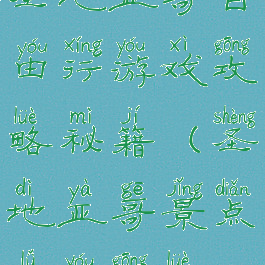 yóu xíng yóu xì gōng
由行游戏攻
lüè mì jí shèng
略秘籍（圣
dì yà gē jǐng diǎn
地亚哥景点